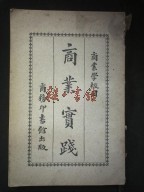 商業學校用
商業實踐
商務印書館出版